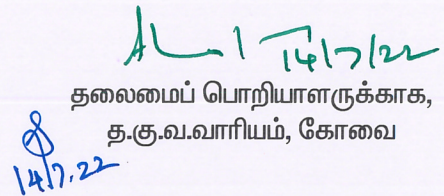 14/7/22
தலைமைப் பொறியாளருக்காக,
த.கு.வ.வாரியம், கோவை
14/7.22